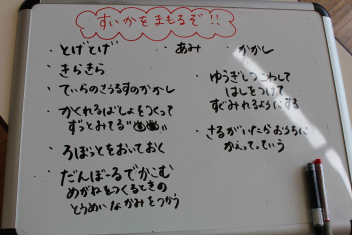 すいかをまもるぞ!!
・とげとげ
・あみ
・かかし
・きらきら
・てぃらのさうるすのかかし
・かくれるばしょをつくって
ずっとみてる
・ろぼっとをおいておく
・だんぼーるでかこむ
めがねをつくるときの
とうめいなかみをつかう
・ゆうぎしつこわして
はしをつけて
すぐみれるようにする
・さるがいたらおうちに
かえってっていう